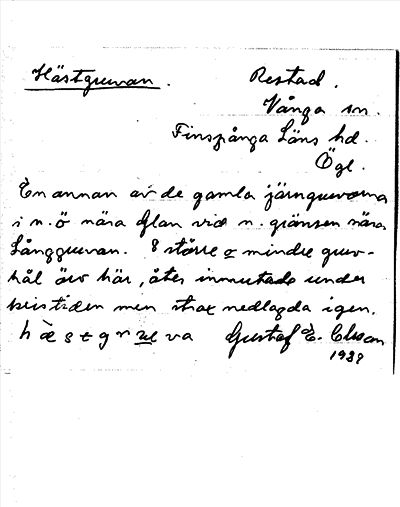 Hästgruvan. Restad.
Vånga sn.
Finspånga Läns hd.
Ögl.
En annan av de gamla järngruvorna
i n.ö nära Glan vid n. gränsen nära
Långgruvan. 8 större o mindre gruv-
hål äro här, åter inmutade under
kristiden men strax nedlagda igen.
h æ s t g r u va Gustaf E. Olsson
1928